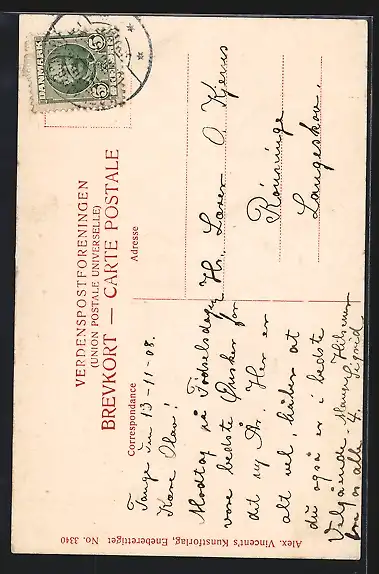 DANMARK
5
5
VERDENSPOSTFORENINGEN
(UNION POSTALE UNIVERSELLE)
BREVKORT — CARTE POSTALE
Correspondance
Adresse
Tange den 13-11-08.
Kære Olav!
Modtag på Fødselsdagen
vore bedste Ønsker for
dit ny År. Her er
alt vel, håber at
du også er i bedste
Velgående. Mange Hilsener
fra os alle 4. Sigrid
Hr. Lærer O. Kjems
Rönninge
Langeskov.
Alex. Vincent's Kunstforlag, Eneberettiget No. 3340